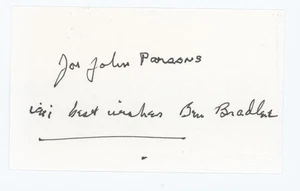 For John Parsons
with best wishes Ben Bradlee